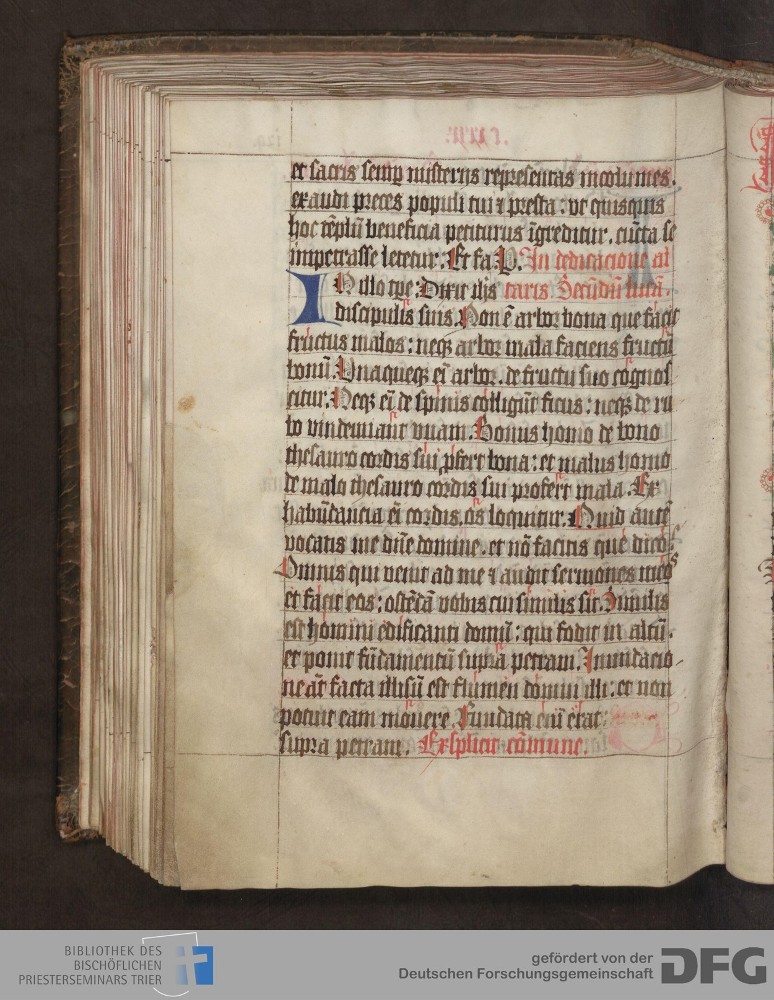 et sacris semꝑ misterijs representas incolumes.
exaudi preces populi tui ⁊ presta: vt quisquis
hoc tēplū beneficia petiturus īgreditur. cūcta se
impetrasse letetur. In dedicacione al
IN illo tꝑe: Dixit ihs taris. Secūdū lucā.
discipulis suis. Non ē arbor bona que facit
fructus malos: neqꝫ arbor mala faciens fructū
bonū. Vnaqueqꝫ eī arbor. de fructu suo cognos
citur. Neqꝫ eī de spinis colligūt ficus: neqꝫ de ru
bo vindemiant vuam. Bonus homo de bono
thesauro cordis sui ꝓfert bona: et malus homo
de malo thesauro cordis sui profert mala. Ex
habūdancia eī cordis. os loquitur. Quid autē
vocatis me dn̄e domine. et nō facitis que dico.
Omnis qui venit ad me ⁊ audit sermones meos
et facit eos: ostēdā vobis cui similis sit. Similis
est homini edificanti domū: qui fodit in altū.
et ponit fūdamentū supra petram. Inundacio
ne aūt facta illisū est flumen domui illi: et non
potuit eam mouere. Fundata enī erat
supra petram. Explicit cōmune.
BIBLIOTHEK DES
BISCHÖFLICHEN
PRIESTERSEMINARS TRIER
gefördert von der
Deutschen Forschungsgemeinschaft DFG